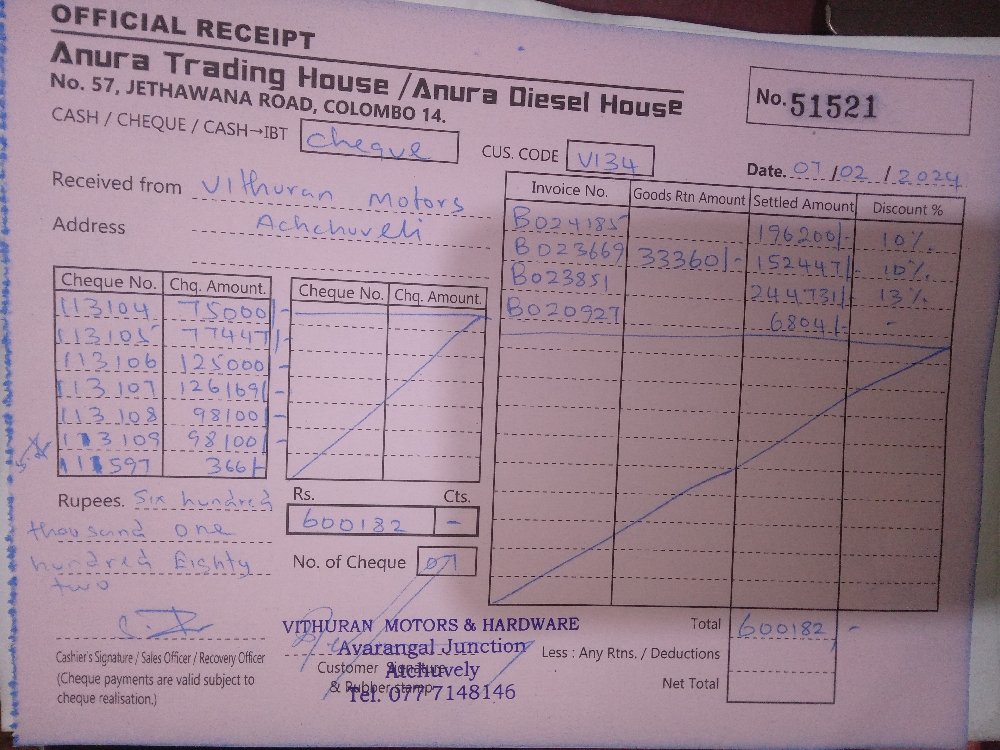 OFFICIAL RECEIPT
Anura Trading House / Anura Diesel House
No. 57, JETHAWANA ROAD, COLOMBO 14.
No. 51521
CASH / CHEQUE / CASH→IBT cheque
CUS. CODE VI34
Date. 07 / 02 / 2024
Received from Vithuran Motors
Address Achchuveli
Invoice No. Goods Rtn Amount Settled Amount Discount %
B024185 196200/- 10%
B023669 33360/- 152447/- 10%
B023851 244731/- 13%
B020927 6804/- -
Cheque No. Chq. Amount. Cheque No. Chq. Amount.
113104 75000/-
113105 77447/-
113106 125000/-
113107 126169/-
113108 98100/-
113109 98100/-
111597 366/-
Rupees. Six hundred
thousand one
hundred Eighty
two
Rs. Cts.
600182 -
No. of Cheque 07
Total 600182 -
Less : Any Rtns. / Deductions
Net Total
Cashier's Signature / Sales Officer / Recovery Officer
(Cheque payments are valid subject to
cheque realisation.)
VITHURAN MOTORS & HARDWARE
Avarangal Junction
Customer Signature
Atchuvely
& Rubber stamp
Tel. 077 7148146